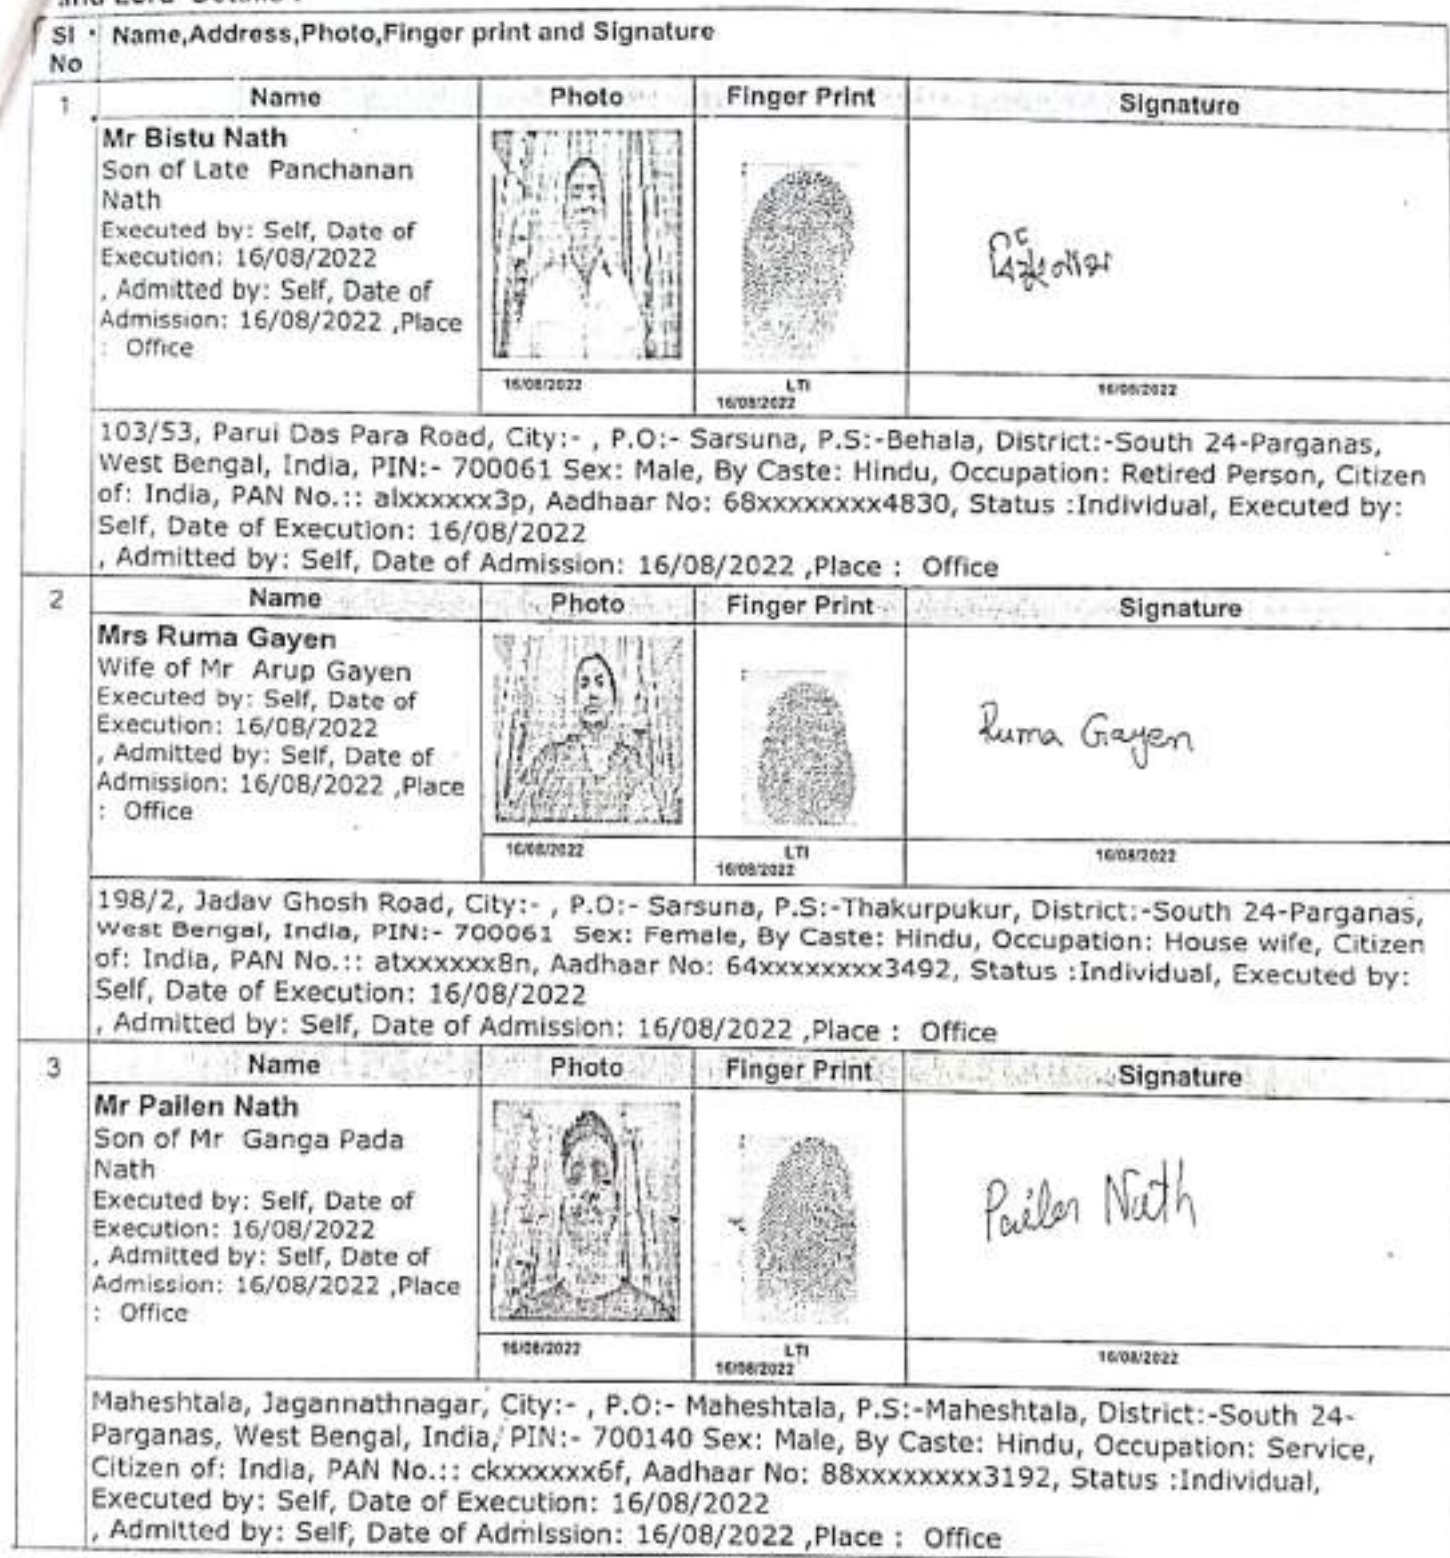 Sl Name,Address,Photo,Finger print and Signature
No
1 Name Photo Finger Print Signature
Mr Bistu Nath
Son of Late Panchanan
Nath
Executed by: Self, Date of
Execution: 16/08/2022
, Admitted by: Self, Date of
Admission: 16/08/2022 ,Place
: Office
16/08/2022 LTI 16/08/2022
16/08/2022
103/53, Parui Das Para Road, City:- , P.O:- Sarsuna, P.S:-Behala, District:-South 24-Parganas,
West Bengal, India, PIN:- 700061 Sex: Male, By Caste: Hindu, Occupation: Retired Person, Citizen
of: India, PAN No.:: alxxxxxx3p, Aadhaar No: 68xxxxxxxx4830, Status :Individual, Executed by:
Self, Date of Execution: 16/08/2022
, Admitted by: Self, Date of Admission: 16/08/2022 ,Place : Office
2 Name Photo Finger Print Signature
Mrs Ruma Gayen
Wife of Mr Arup Gayen
Executed by: Self, Date of
Execution: 16/08/2022
, Admitted by: Self, Date of
Admission: 16/08/2022 ,Place
: Office
Ruma Gayen
16/08/2022 LTI 16/08/2022
16/08/2022
198/2, Jadav Ghosh Road, City:- , P.O:- Sarsuna, P.S:-Thakurpukur, District:-South 24-Parganas,
West Bengal, India, PIN:- 700061 Sex: Female, By Caste: Hindu, Occupation: House wife, Citizen
of: India, PAN No.:: atxxxxxx8n, Aadhaar No: 64xxxxxxxx3492, Status :Individual, Executed by:
Self, Date of Execution: 16/08/2022
, Admitted by: Self, Date of Admission: 16/08/2022 ,Place : Office
3 Name Photo Finger Print Signature
Mr Pailen Nath
Son of Mr Ganga Pada
Nath
Executed by: Self, Date of
Execution: 16/08/2022
, Admitted by: Self, Date of
Admission: 16/08/2022 ,Place
: Office
Pailen Nath
16/08/2022 LTI 16/08/2022
16/08/2022
Maheshtala, Jagannathnagar, City:- , P.O:- Maheshtala, P.S:-Maheshtala, District:-South 24-
Parganas, West Bengal, India, PIN:- 700140 Sex: Male, By Caste: Hindu, Occupation: Service,
Citizen of: India, PAN No.:: ckxxxxxx6f, Aadhaar No: 88xxxxxxxx3192, Status :Individual,
Executed by: Self, Date of Execution: 16/08/2022
, Admitted by: Self, Date of Admission: 16/08/2022 ,Place : Office